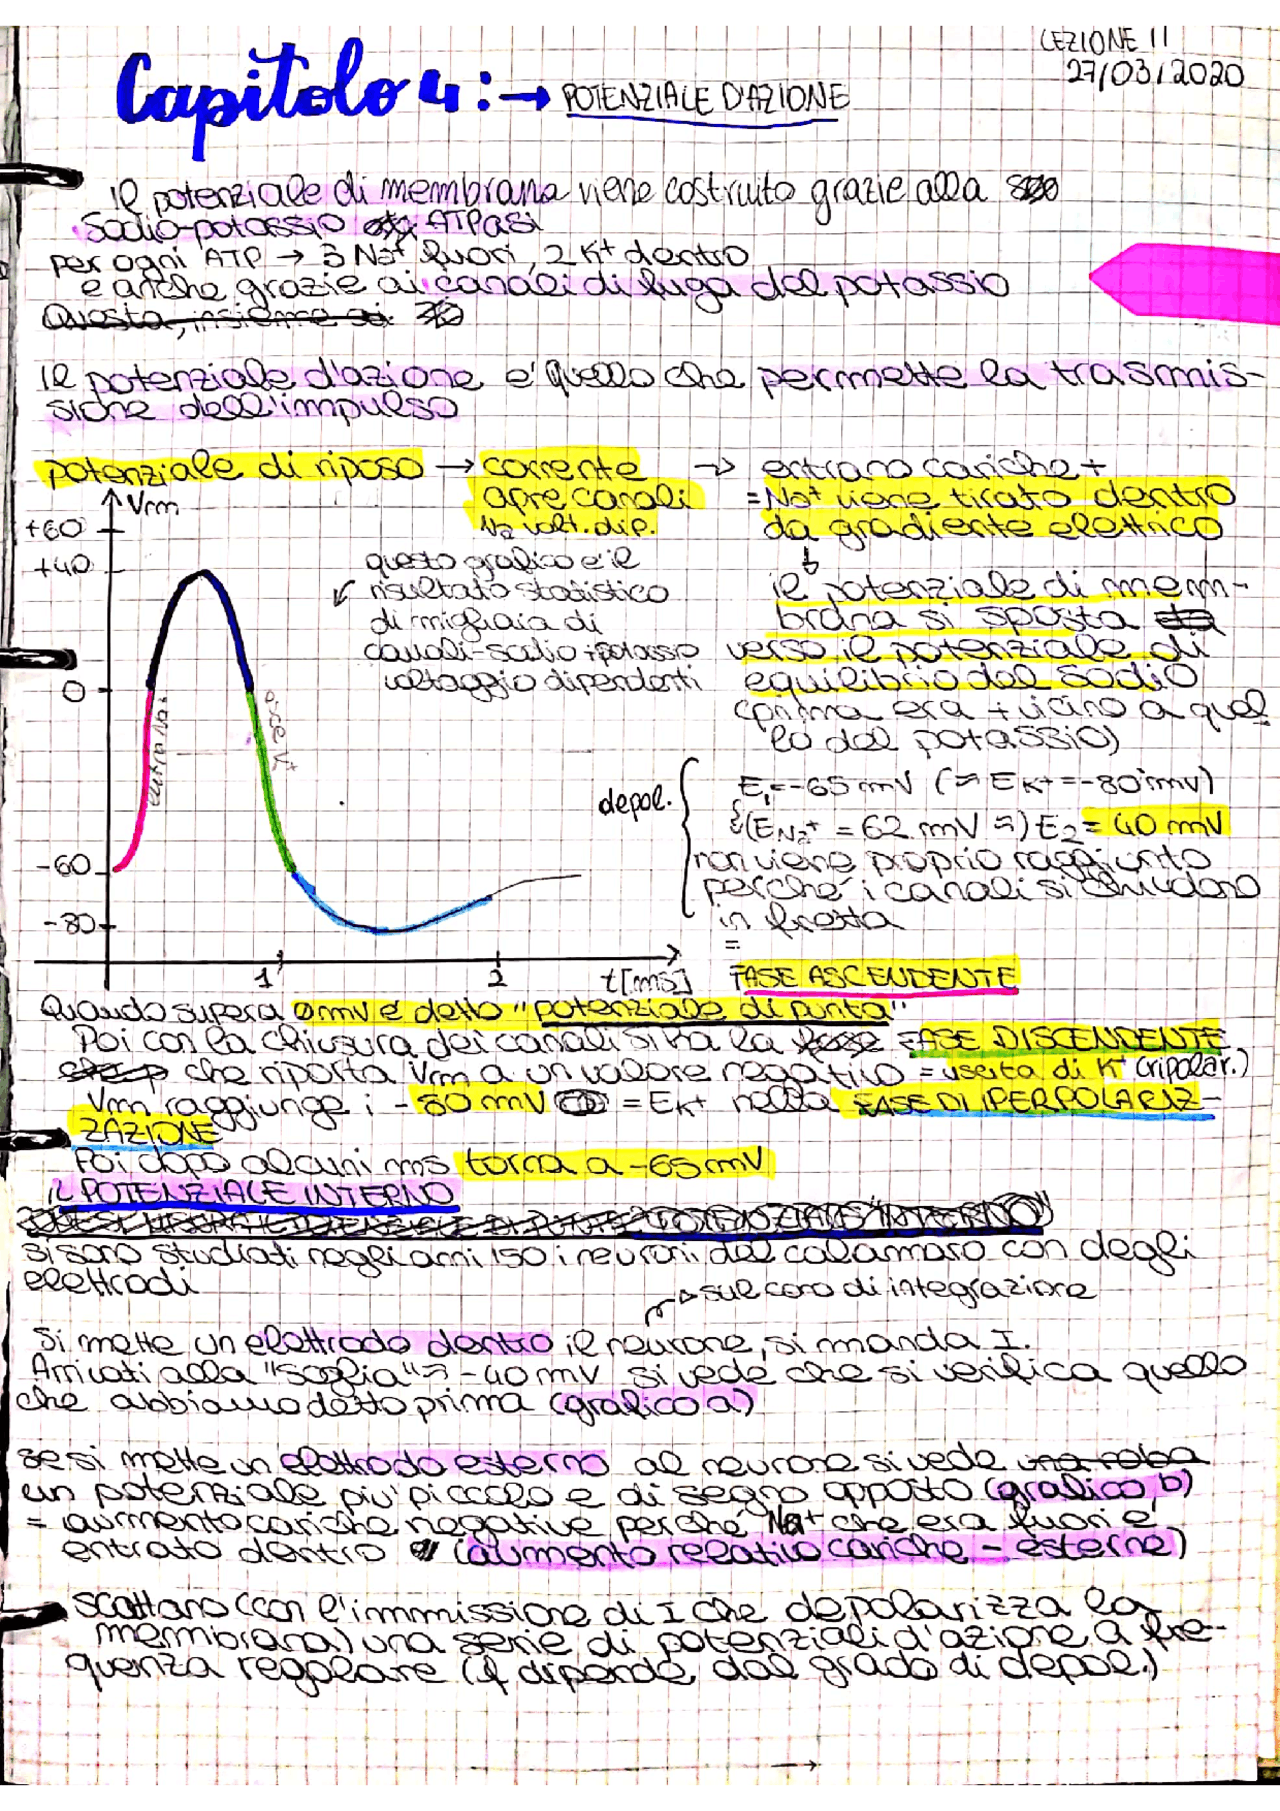 LEZIONE 11
27/03/2020
Capitolo 4: → POTENZIALE D'AZIONE
il potenziale di membrana viene costruito grazie alla
sodio-potassio ATPasi
per ogni ATP → 3 Na+ fuori, 2 K+ dentro
e anche grazie ai canali di fuga del potassio
Questa, insieme ai
il potenziale d'azione e' quello che permette la trasmis-
sione dell'impulso
potenziale di riposo → corrente → entrano cariche +
apre canali = Na+ viene tirato dentro
Na volt. dip. da gradiente elettrico
↓
il potenziale di mem-
brana si sposta
verso il potenziale di
equilibrio del sodio
(prima era + vicino a quel
lo del potassio)
questo grafico e' il
risultato statistico
di migliaia di
canali-sodio + potassio
voltaggio dipendenti
Vm
+60
+40
0
-60
-80
1
2
t[ms]
entra Na+
esce K+
depol.
E1=-65 mV (≈ EK+ = -80 mV)
(ENa+ = 62 mV ≈) E2 = 40 mV
non viene proprio raggiunto
perche' i canali si chiudono
in fretta
=
FASE ASCENDENTE
Quando supera 0 mV e' detto "potenziale di punta"
Poi con la chiusura dei canali si ha la FASE DISCENDENTE
che riporta Vm a un valore negativo = uscita di K+ (ripolar.)
Vm raggiunge i -80 mV = EK+ nella FASE DI IPERPOLARIZ-
ZAZIONE
Poi dopo alcuni ms torna a -65 mV
IL POTENZIALE INTERNO
si sono studiati negli anni '50 i neuroni del calamaro con degli
elettrodi
→ sul cono di integrazione
Si mette un elettrodo dentro il neurone, si manda I.
Arrivati alla "soglia" ≈ -40 mV si vede che si verifica quello
che abbiamo detto prima (grafico a)
se si mette un elettrodo esterno al neurone si vede una roba
un potenziale piu' piccolo e di segno opposto (grafico b)
= aumento cariche negative perche' Na+ che era fuori e'
entrato dentro (aumento relativo cariche - esterne)
scattano (con l'immissione di I che depolarizza la
membrana) una serie di potenziali d'azione a fre-
quenza regolare (f dipende dal grado di depol.)
→